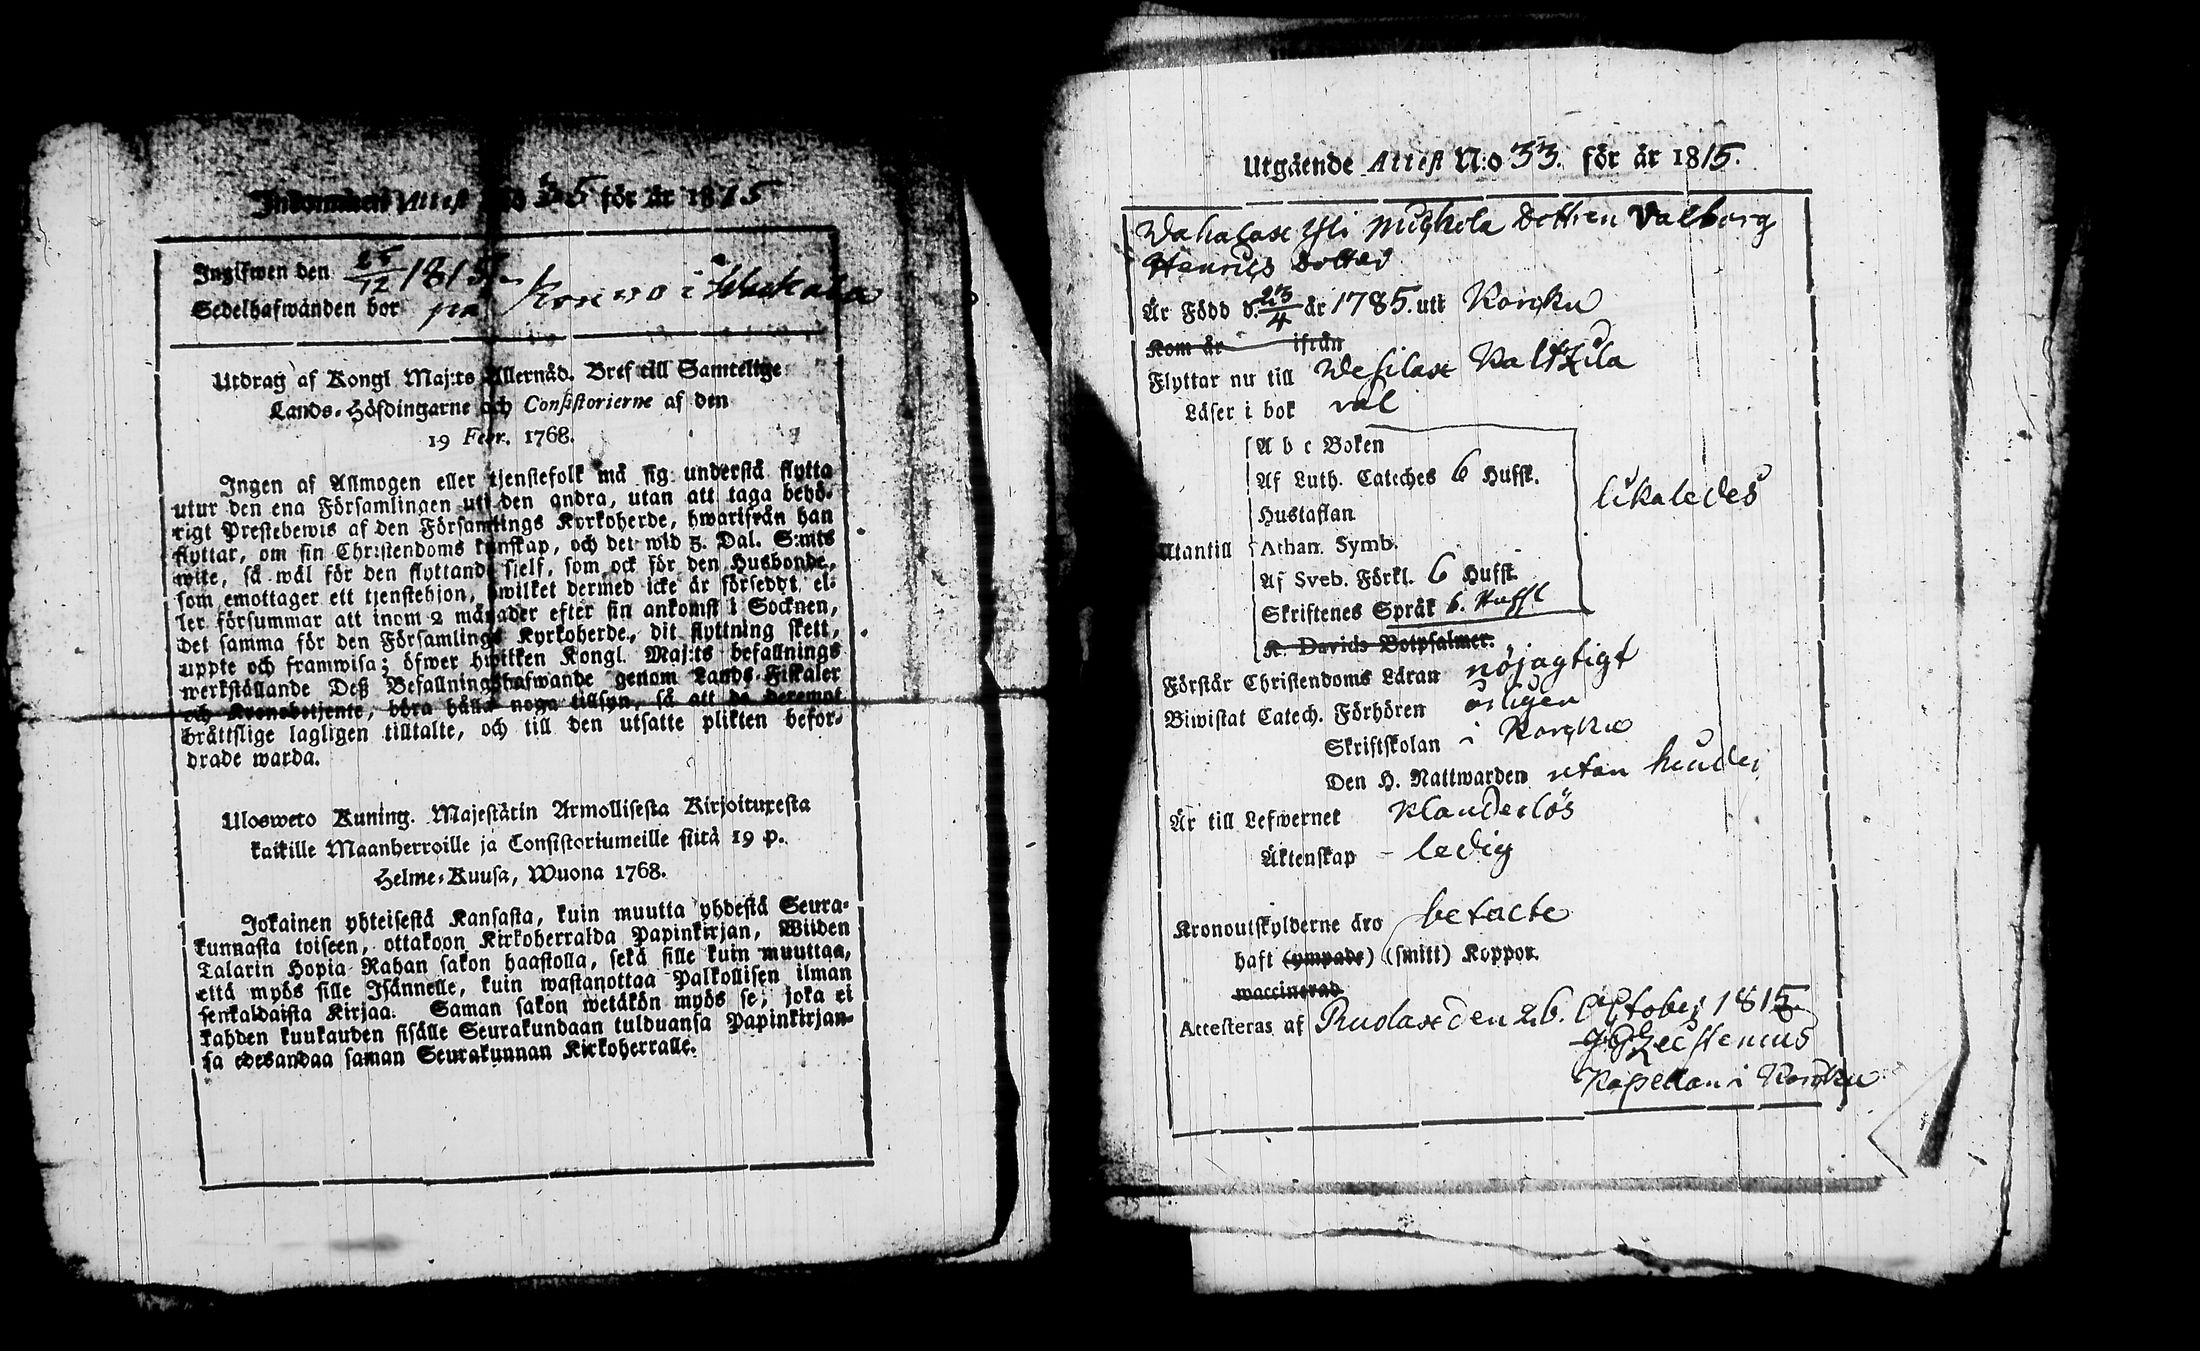 Inkommen Attest N:o 35 för år 1815
Ingifwen den 26/12 1815
Sedelhafwanden bor på Konno i
Utdrag af Kongl Maj:ts Allernåd. Bref till Samtelige
Lands-Höfdingarne och Consistorierne af den
19 Febr. 1768.
Ingen af Allmogen eller tjenstefolk må sig understå flytta
utur den ena Församlingen uti den andra, utan att taga behö-
rigt Prestebewis af den Församlings Kyrkoherde, hwarifrån han
flyttar, om sin Christendoms kunskap, och det wid 5. Dal. S:mts
wite, så wäl för den flyttande sjelf, som ock för den Husbonde,
som emottager ett tjenstehjon, hwilket dermed icke är försedt el-
ler försummar att inom 2 månader efter sin ankomst i Socknen,
det samma för den Församlings Kyrkoherde, dit flyttning skett,
uppte och framwisa; öfwer hwilken Kongl. Maj:ts befallnings
werkställande Deß Befallningshafwande genom Lands-Fiskaler
och Kronobetjente, böra hålla noga tillsyn, så att de deremot
brättslige lagligen tilltalte, och till den utsatte plikten befor-
drade warda.
Ulosweto Kuning. Majestätin Armollisesta Kirjoituxesta
kaikille Maanherroille ja Consistoriumeille siitä 19 p.
Helme-Kuusa, Wuona 1768.
Jokainen yhteisestä Kansasta, kuin muutta yhdestä Seura-
kunnasta toiseen, ottakoon Kirkoherralda Papinkirjan, Wiiden
Talarin Hopia Rahan sakon haastolla, sekä sille kuin muuttaa,
että myös sille Isännelle, kuin wastanottaa Palkollisen ilman
senkaldaista Kirjaa. Saman sakon wetäkön myös se, joka ei
kahden kuukauden sisälle Seurakundaan tulduansa Papinkirjan-
sa edesandaa saman Seurakunnan Kirkoherralle.
Utgående Attest N:o 33. för år 1815.
Wahalax Yli Michola dottren Valborg
Henrics dotter
Är Född d. 23/4 år 1785. uti Korpku
Kom år ifrån
Flyttar nu till Wesilax
Läser i bok väl
A b c Boken
Af Luth. Cateches 6 Hufst.
Hustaflan
Utantill Athan. Symb. likaledes
Af Sveb. Förkl. 6 Hufst.
Skriftenes Språk 6. Hufst
K. Davids Botpsalmer.
Förstår Christendoms Läran nöjagtigt
Biwistat Catech. Förhören årligen
Skriftskolan i
Den H. Nattwarden utan hinder
Är till Lefwernet klanderlös
Äktenskap – ledig
Kronoutskylderne äro betalte
haft (ympade) (smitt) Koppor.
waccinerad
Attesteras af Ruolax den 26. October 1815
Kapellan i